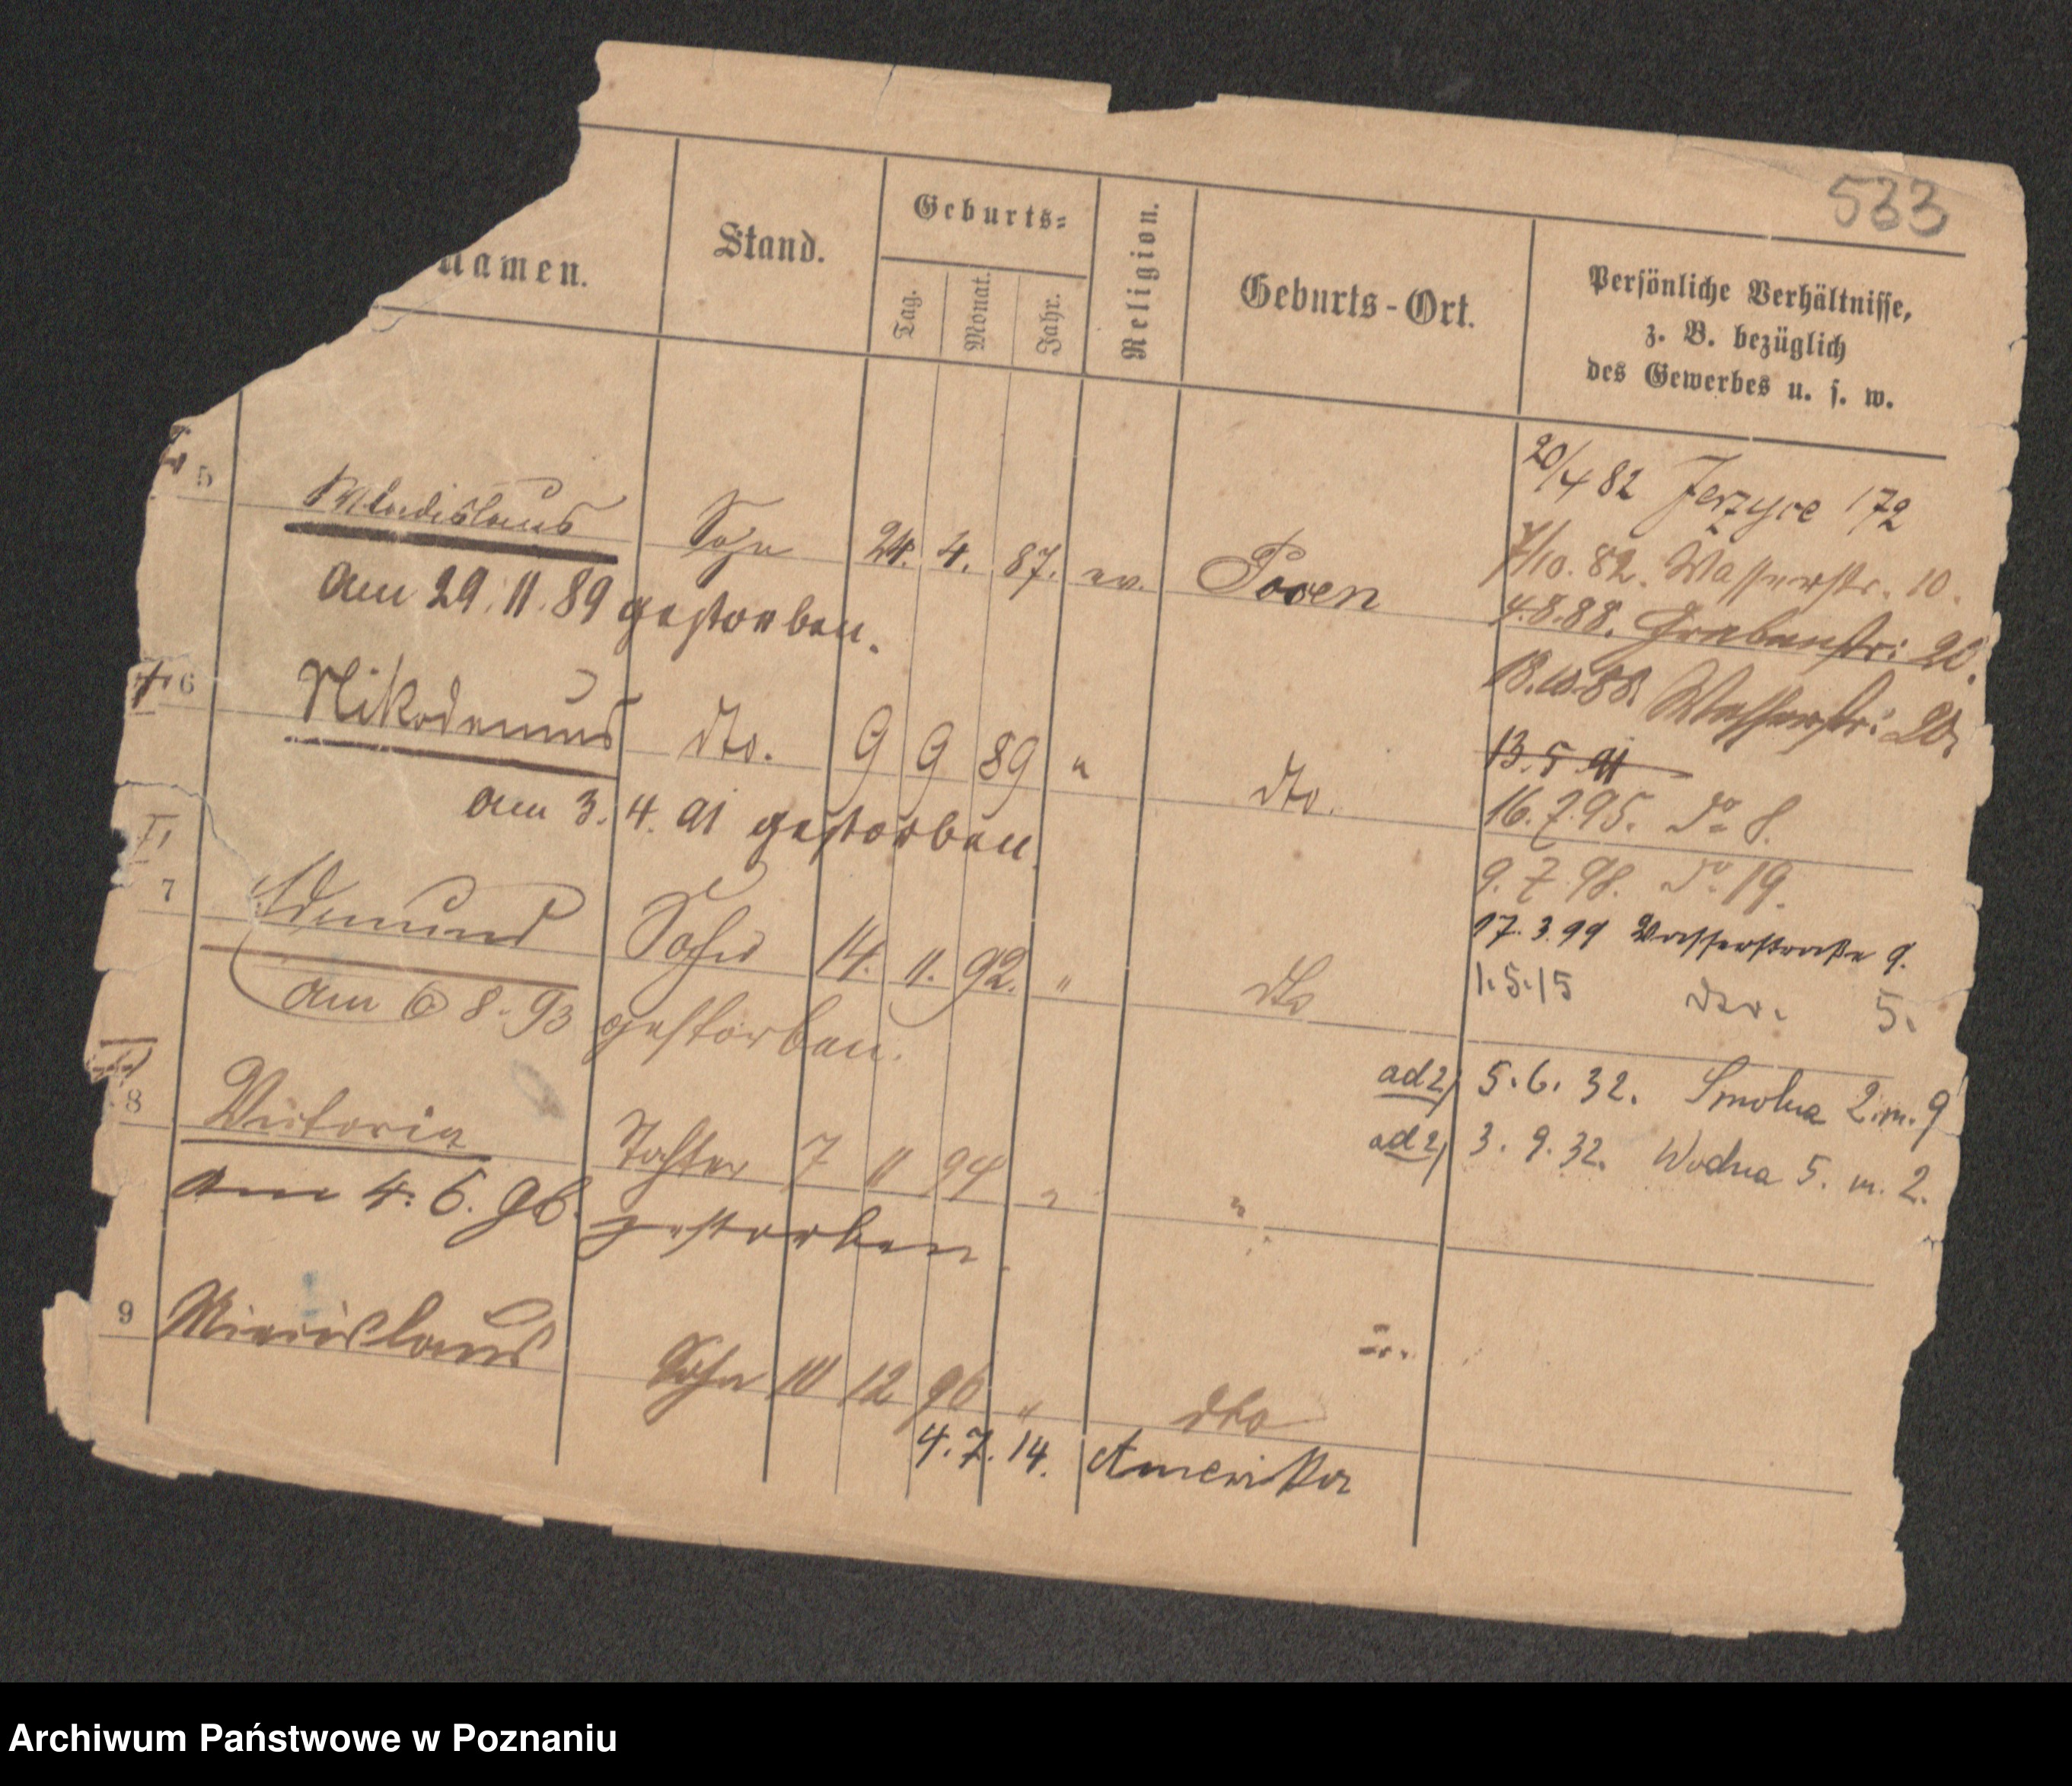 533
namen.
Stand.
Geburts-
Tag.
Monat.
Jahr.
Religion.
Geburts-Ort.
Persönliche Verhältnisse,
z. B. bezüglich
des Gewerbes u. s. w.
5 Wladislaus Sohn 24. 4. 87. ev. Posen
am 29.11.89 gestorben.
6 Nikodemus dto. 9 9 89 " dto.
am 3.4.91 gestorben.
7 Edmund Sohn 14. 11. 92. " dto
am 6 8. 93 gestorben.
8 Victoria Tochter 7 11 94 " "
am 4. 6. 96. gestorben
9 Miecislaus Sohn 10 12 96 " dto
4. 7. 14. Amerika
20/4 82 Jerzyce 172
7/10. 82. Wasserstr. 10.
4.8.88. Grabenstr: 20.
18.10.88. Wasserstr:
13.5.91
16.7.95. do 8.
9. 7. 98. do 19.
17. 3. 99 Wasserstraße 9.
1.5.15 dto. 5.
ad 2) 5. 6. 32. Smolna 2. m. 9
ad 2) 3. 9. 32. Wodna 5. m. 2.
Archiwum Państwowe w Poznaniu